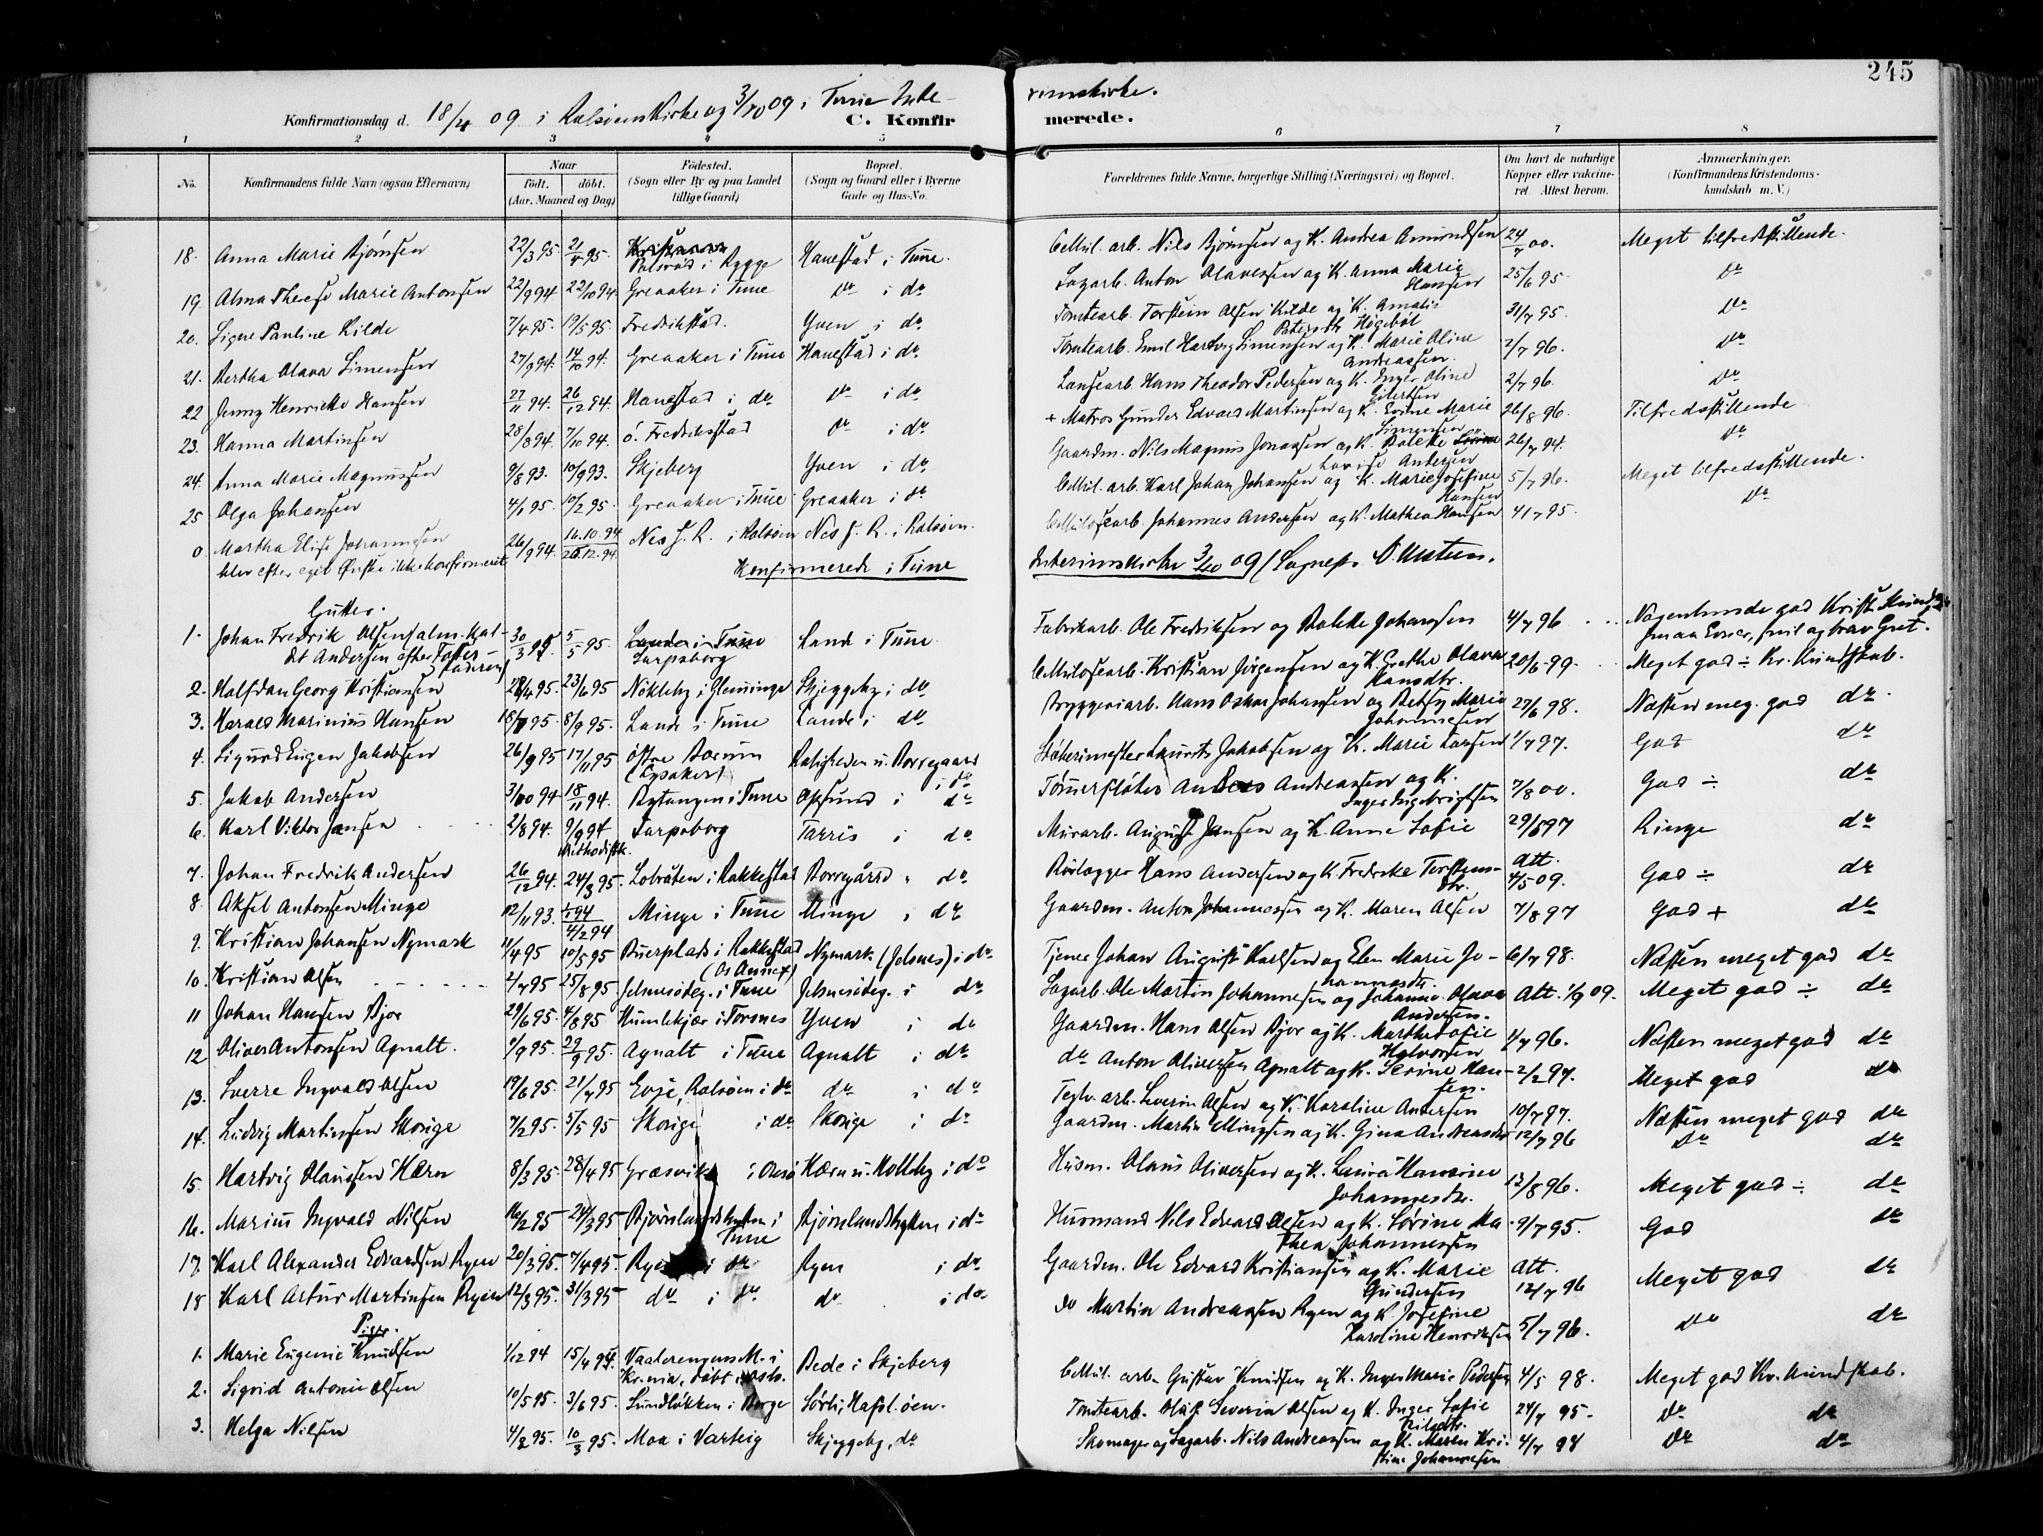 245
Konfirmationsdag d. 18/4 09 i Rolsøens Kirke og 3/10 09 i Tune Inte-
rimskirke.
C. Konfirmerede.
1 2 3 4 5 6 7 8
No. Konfirmandens fulde Navn (ogsaa Efternavn) Naar født. døbt. (Aar, Maaned og Dag) Fødested. (Sogn eller By og paa Landet tillige Gaard) Bopæl. (Sogn og Gaard eller i Byerne Gade og Hus-No. Forældrenes fulde Navne, borgerlige Stilling (Næringsvei) og Bopæl. Om havt de naturlige Kopper eller vakcineret Attest herom. Anmærkninger. (Konfirmandens Kristendomskundskab m. V.)
18. Anna Marie Bjørnsen 22/3 95 21/4 95. Palsrød i Rygge Hanestad i Tune. Cellul. arb. Nils Bjørnsen og K. Andrea Amundsen 24/7 00. Meget tilfredsstillende.
19. Alma Therese Marie Antonsen 22/9 94 22/10 94. Greaaker i Tune do i do Sagarb. Anton Olavessen og K. Anna Marie Hansen 25/6 95 do
20. Signe Pauline Kilde 7/4 95. 19/5 95. Fredrikstad. Yven i do Tomtearb. Torstein Olsen Kilde og K. Amalie Petersdtr. Høgebøl 31/7 95. do
21. Bertha Olava Simensen 27/9 94. 14/10 94. Greaaker i Tune Hanestad i do. Tomtearb. Emil Hartvig Simensen og K. Marie Oline Andreassen. 2/7 96. do
22 Jenny Henrikke Hansen 27/11 94. 26/12 94. Hanestad i do do i do. Lansearb. Hans Theodor Pedersen og K. Inger Oline Eilertsen 2/7 96. do
23. Hanna Martinsen 28/8 94. 7/10 94. Ø. Fredriksstad do i do + Matros Gunder Edvard Martinsen og K. Evine Marie Simensen 26/8 96. Tilfredsstillende
24. Anna Marie Magnussen 9/8 93. 10/9 93. Skjeberg Yven i do Gaardm. Nils Magnus Jonassen og K. Bolette Lovise Andersen 26/7 94. do
25 Olga Johansen 4/1 95 10/2 95. Greaaker i Tune Greaaker i do Cellul. arb. Karl Johan Johansen og K. Marie Josefine Hansen 5/7 96. Meget tilfredsstillende.
0 Martha Elise Johannesen 26/9 94. 16.10.94 26.12.94. Nes J. R. i Rolsøen Nes J. R. i Rolsøen. Cellulosearb. Johannes Andersen og K. Mathea Hansen 4/7 95. do
blev efter eget Ønske ikke konfirmeret
Konfirmerede i Tune Interimskirke 3/10 09 (Sognepr.
Gutter.
1. Johan Fredrik Olsen 30/3 95 5/5 95. Sarpsborg Lande i Tune. Fabrikarb. Ole Fredriksen og Bolette Johansen 4/7 96
det Andersen efter
2. Halfdan Georg Kristiansen 23/6 95 Nøkleby i Glemminge Skjeggeby i do Cellulosearb. Kristian Jørgensen og K. Grethe Olava Hansdtr. 20/6 99. Meget god ÷ Kr. Kundskab.
3. Harald Marinius Hansen 8/9 95. Lande i Tune Lande i do Bryggeriarb. Hans Oskar Johansen og Betsy Marie Johannesen 27/6 98. Næsten meg. god do.
4. Sigurd Eugen Jakobsen 26/9 95 17/11 95 østre Bærum (Lysaker) Roligheden u. Borregaard i do Støberimester Laurits Jakobsen og K. Marie Larsen 1/7 97. God do
5. Jakob Andersen 3/10 94 18/11 94. Rytangen i Tune Opsund i do Tømmerfløter Anders Andreassen og K. Inger Ingebrigtsen 7/8 00. God ÷ do
6. Karl Viktor Jansen 2/8 94. 9/9 94 Methodistk. Sarpsborg Tarris i do Murarb. August Jansen og K. Anne Sofie 29/6 97 Ringe do
7. Johan Fredrik Andersen 26/12 94. 24/3 95. i Rakkestad Borregård " do Rørlægger Hans Andersen og K. Fredrikke Torstensdtr. Att. 4/5 09. God ÷ do
8. Aksel Antonsen Minge 12/11 93. 1/1 94 4/2 94 Minge i Tune Minge i do Gaardm. Anton Johannessen og K. Maren Olsen 7/8 97 God + do
9. Kristian Johansen Nymark 11/4 95 10/5 95 Buerplads i Rakkestad (Os Annex) Nymark (Jelsnes) i do Tjener Johan August Karlsen og Elen Marie Johannesdtr. 6/7 98. Næsten meget god do
10. Kristian Olsen 2/7 95 25/8 95 Jelsnesødeg. i Tune Jelsnesødeg. i do Sagarb. Ole Martin Johannesen og Johanne Olava Andersen. Att. 1/9 09. Meget god ÷ do
11 Johan Hansen Bjor 29/6 95. 4/8 95 Humlekjær i Torsnes Yven i do Gaardm. Hans Olsen Bjor og K. Marthe Sofie Halvorsen 1/7 96. Næsten meget god do
12 Oliver Antonsen Agnalt. 1/9 95. 29/9 95. Agnalt i Tune Agnalt i do do Anton Oliversen Agnalt og K. Serine Hansen. 2/2 97. Meget god do
13. Sverre Ingvald Olsen 19/6 95. 21/7 95 Evje, Rolsøen i do do i do Teglv. arb. Severin Olsen og K. Karoline Andersen 10/7 97. Næsten meget god do
14. Ludvig Martinsen Skorige 7/2 95. 5/5 95 Skorige i do Skorige i do Gaardm. Martin og K. Gina Andreasdtr 12/7 96 do do
15. Hartvig Olaussen Hærn 8/3 95 28/4 95 Græsvik i Onsø Hærn u. Holleby i do Husm. Olaus Oliversen og K. Laura Hansine Johannesdtr. 13/8 96. Meget god ÷ do
16. Marius Ingvald Nilsen 16/2 95 24/3 95 Bjørnlandshytten i Tune Bjørnlandshytten i do Husmand Nils Edvard Olsen og K. Sørine Mathea Johannessen 9/7 95. God do
17. Karl Alexander Edvardsen Ryen 20/3 95. 7/4 95. Ryen i do Ryen i do Gaardm. Ole Edvard Kristiansen og K. Marie Gundersen Att. 12/7 96 Meget god do
18 Karl Artur Martinsen Ryen 12/3 95. 31/3 95 do i do do i do do Martin Andreassen Ryen og K. Josefine Karoline Henriksen 5/7 96. do do
Piger.
1. Marie Eugenie Knudsen 1/12 94 15/4 95. Vaalerengens M. i Kr.nia, døbt i Oslo. Bede i Skjeberg Cellul. arb. Gustav Knudsen og K. Inger Marie Pedersen 4/5 98. Meget god Kr. Kundskab.
2. Sigrid Antonie Olsen 10/5 95. 3/6 95. Sundløkken i Borge Sørli, Hafsl.øen. Tomtearb. Oluf Severin Olsen og K. Inger Sofie Nilsdtr. 24/7 95. do do
3. Helga Nilsen 4/2 95. 10/3 95. Moa i Varteig Skjeggeby, do Skomager og Sagarb. Nils Andreassen og K. Maren Kristine Johannesen 4/7 98 do do